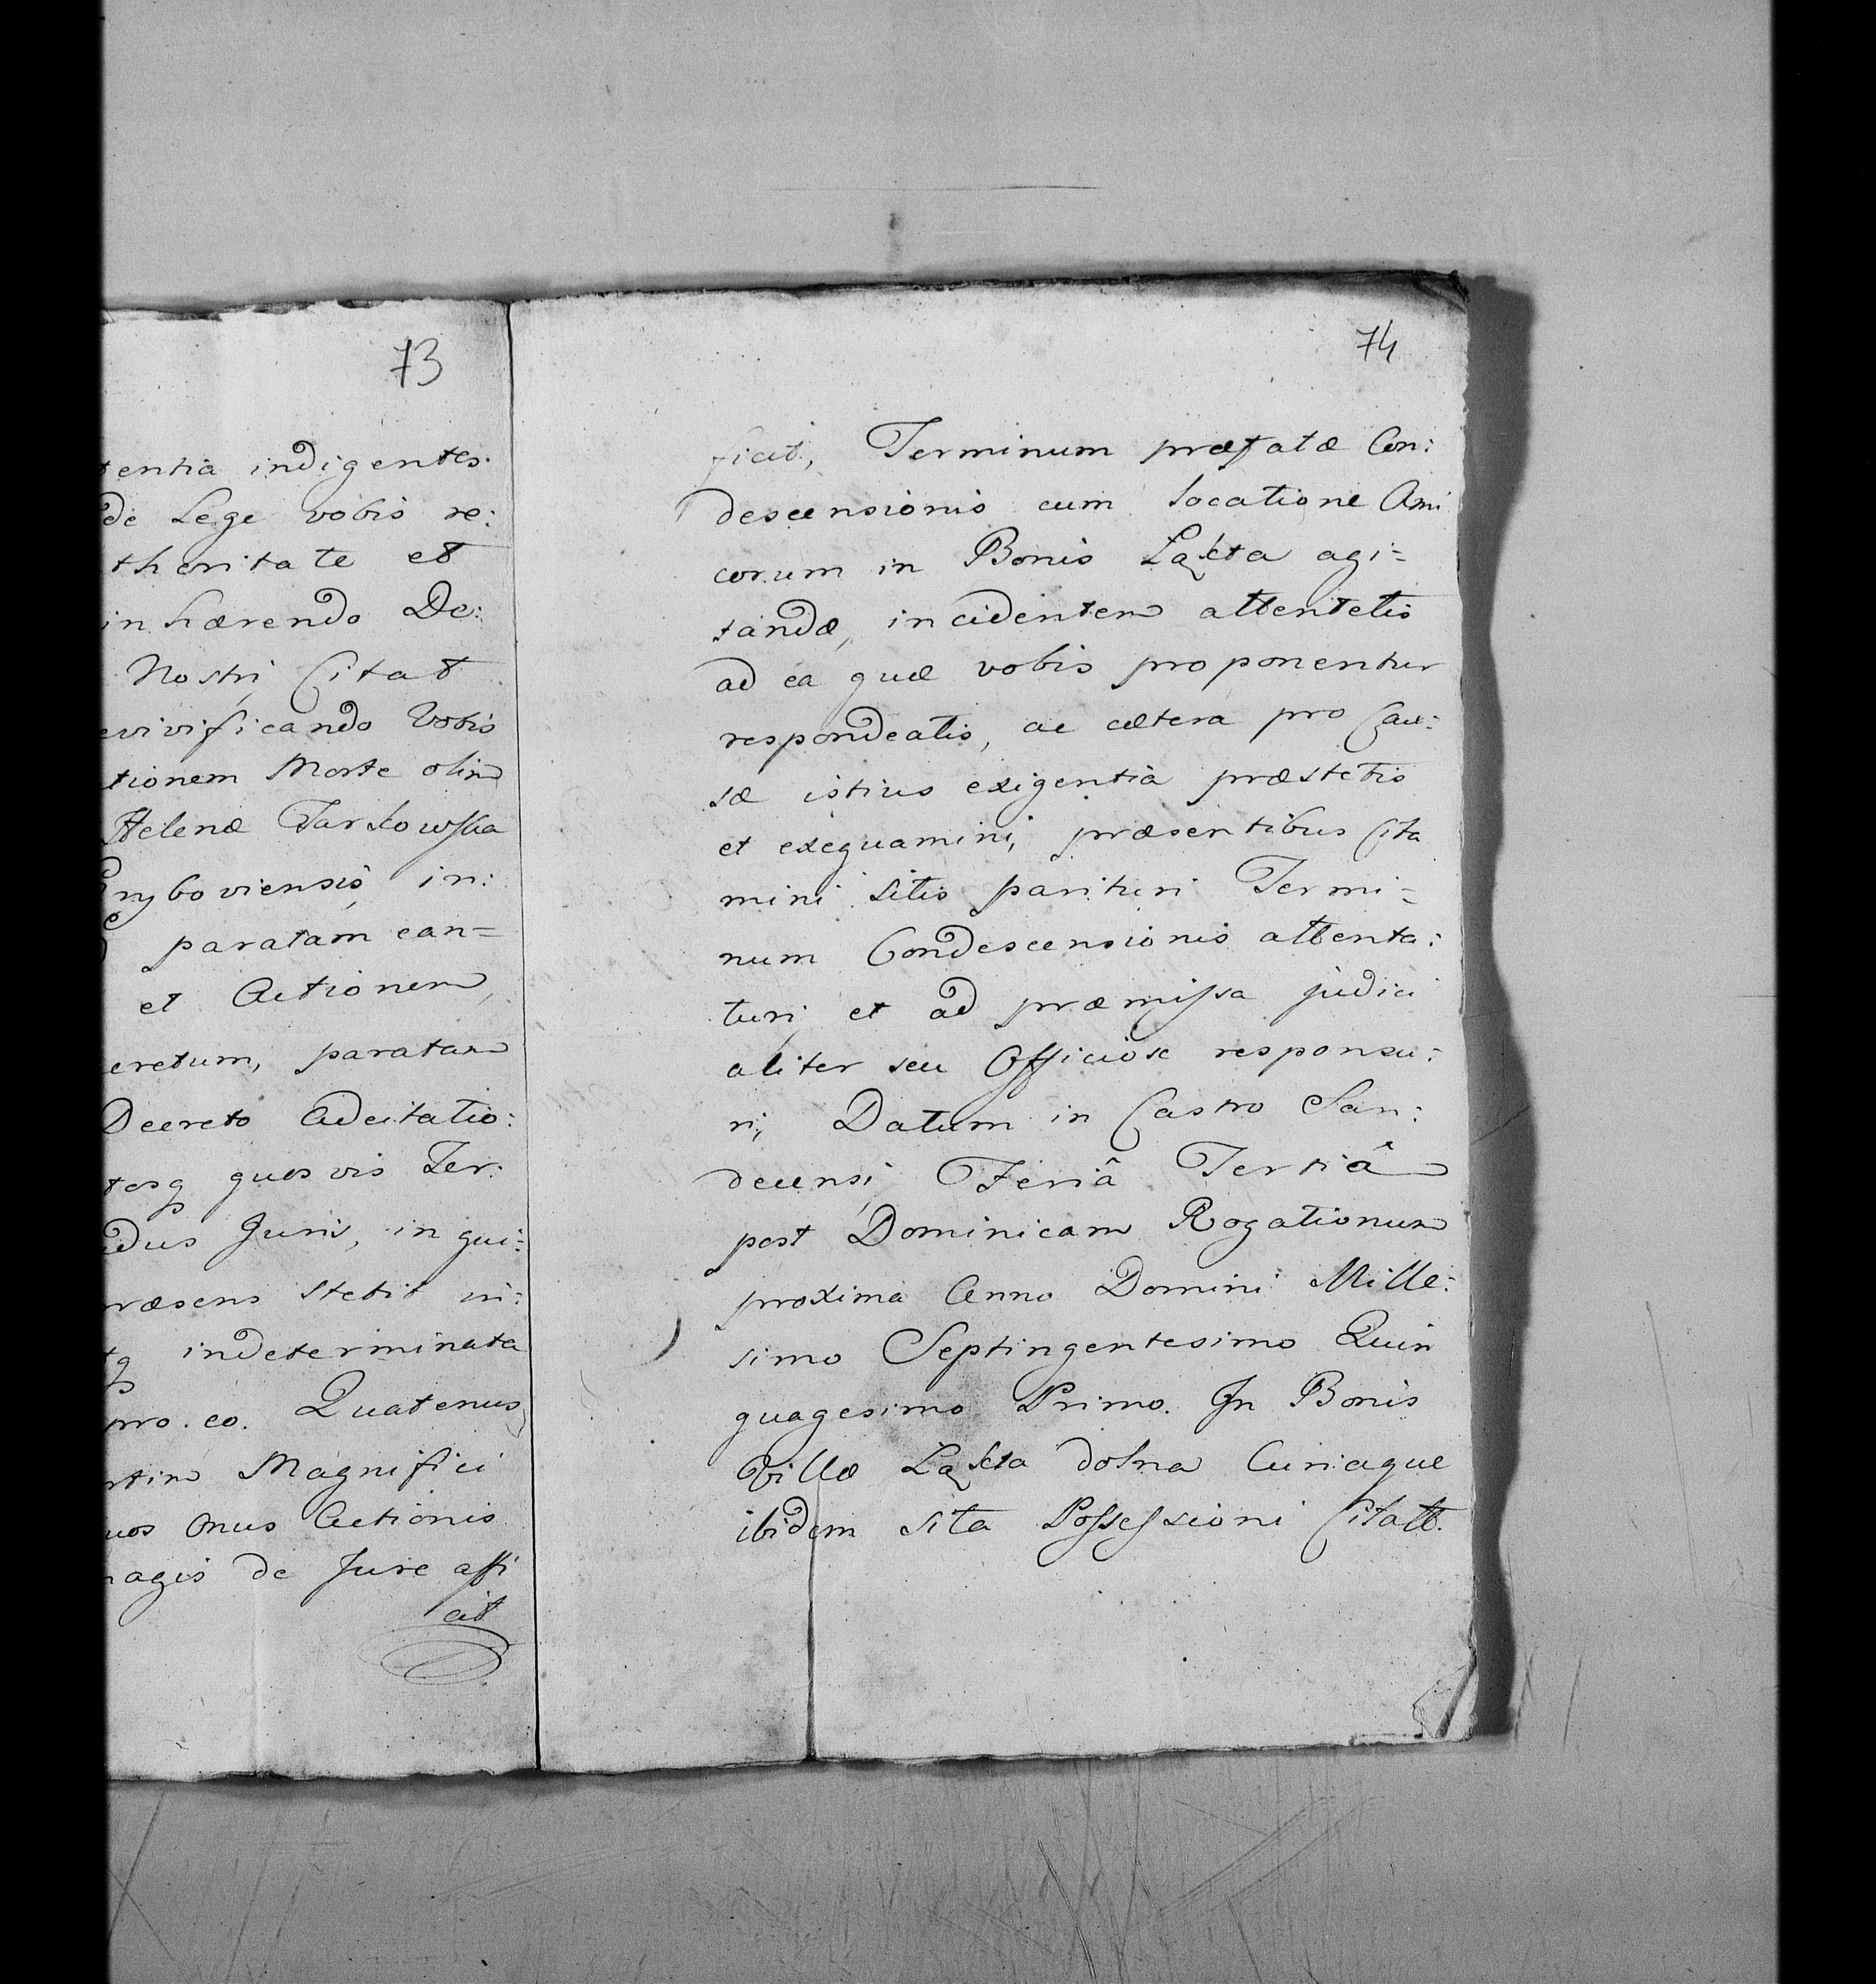 73
tentia indigentes.
de Lege vobis re:
thoritate et
inhærendo De:
Nostri Citat
evivificando Vobis
tionem Morte olim
Helenæ Tarkowska
Gryboviensis, in:
paratam ean=
et Actionem,
cretum, paratam
Decreto Adcitatio:
tosq quosvis Ter:
dus Juris, in qui:
ræsens stetit in:
tq indeterminata
pro. eo. Quatenus
rtim Magnifici
uos onus Actionis
agis de Jure affi
cit
74
ficit, Terminum præfatæ Con:
descensionis cum locatione Ami
corum in Bonis Łąkta agi=
tandæ, incidentem attentetis
ad ea quæ vobis proponentur
respondeatis, ac cætera pro Cau:
sæ istius exigentia præstetis
et exequamini, præsentibus Cita
mini sitis parituri Termi=
num Condescensionis attenta:
turi et ad præmissa judici
aliter seu Officiose responsu:
ri, Datum in Castro San:
decensi Feriâ Tertiâ
post Dominicam Rogationum
proxima Anno Domini Mille:
simo Septingentesimo Quin
quagesimo Primo. In Bonis
Villæ Łąkta dolna Curiaque
ibidem sita Possessioni Citatt.